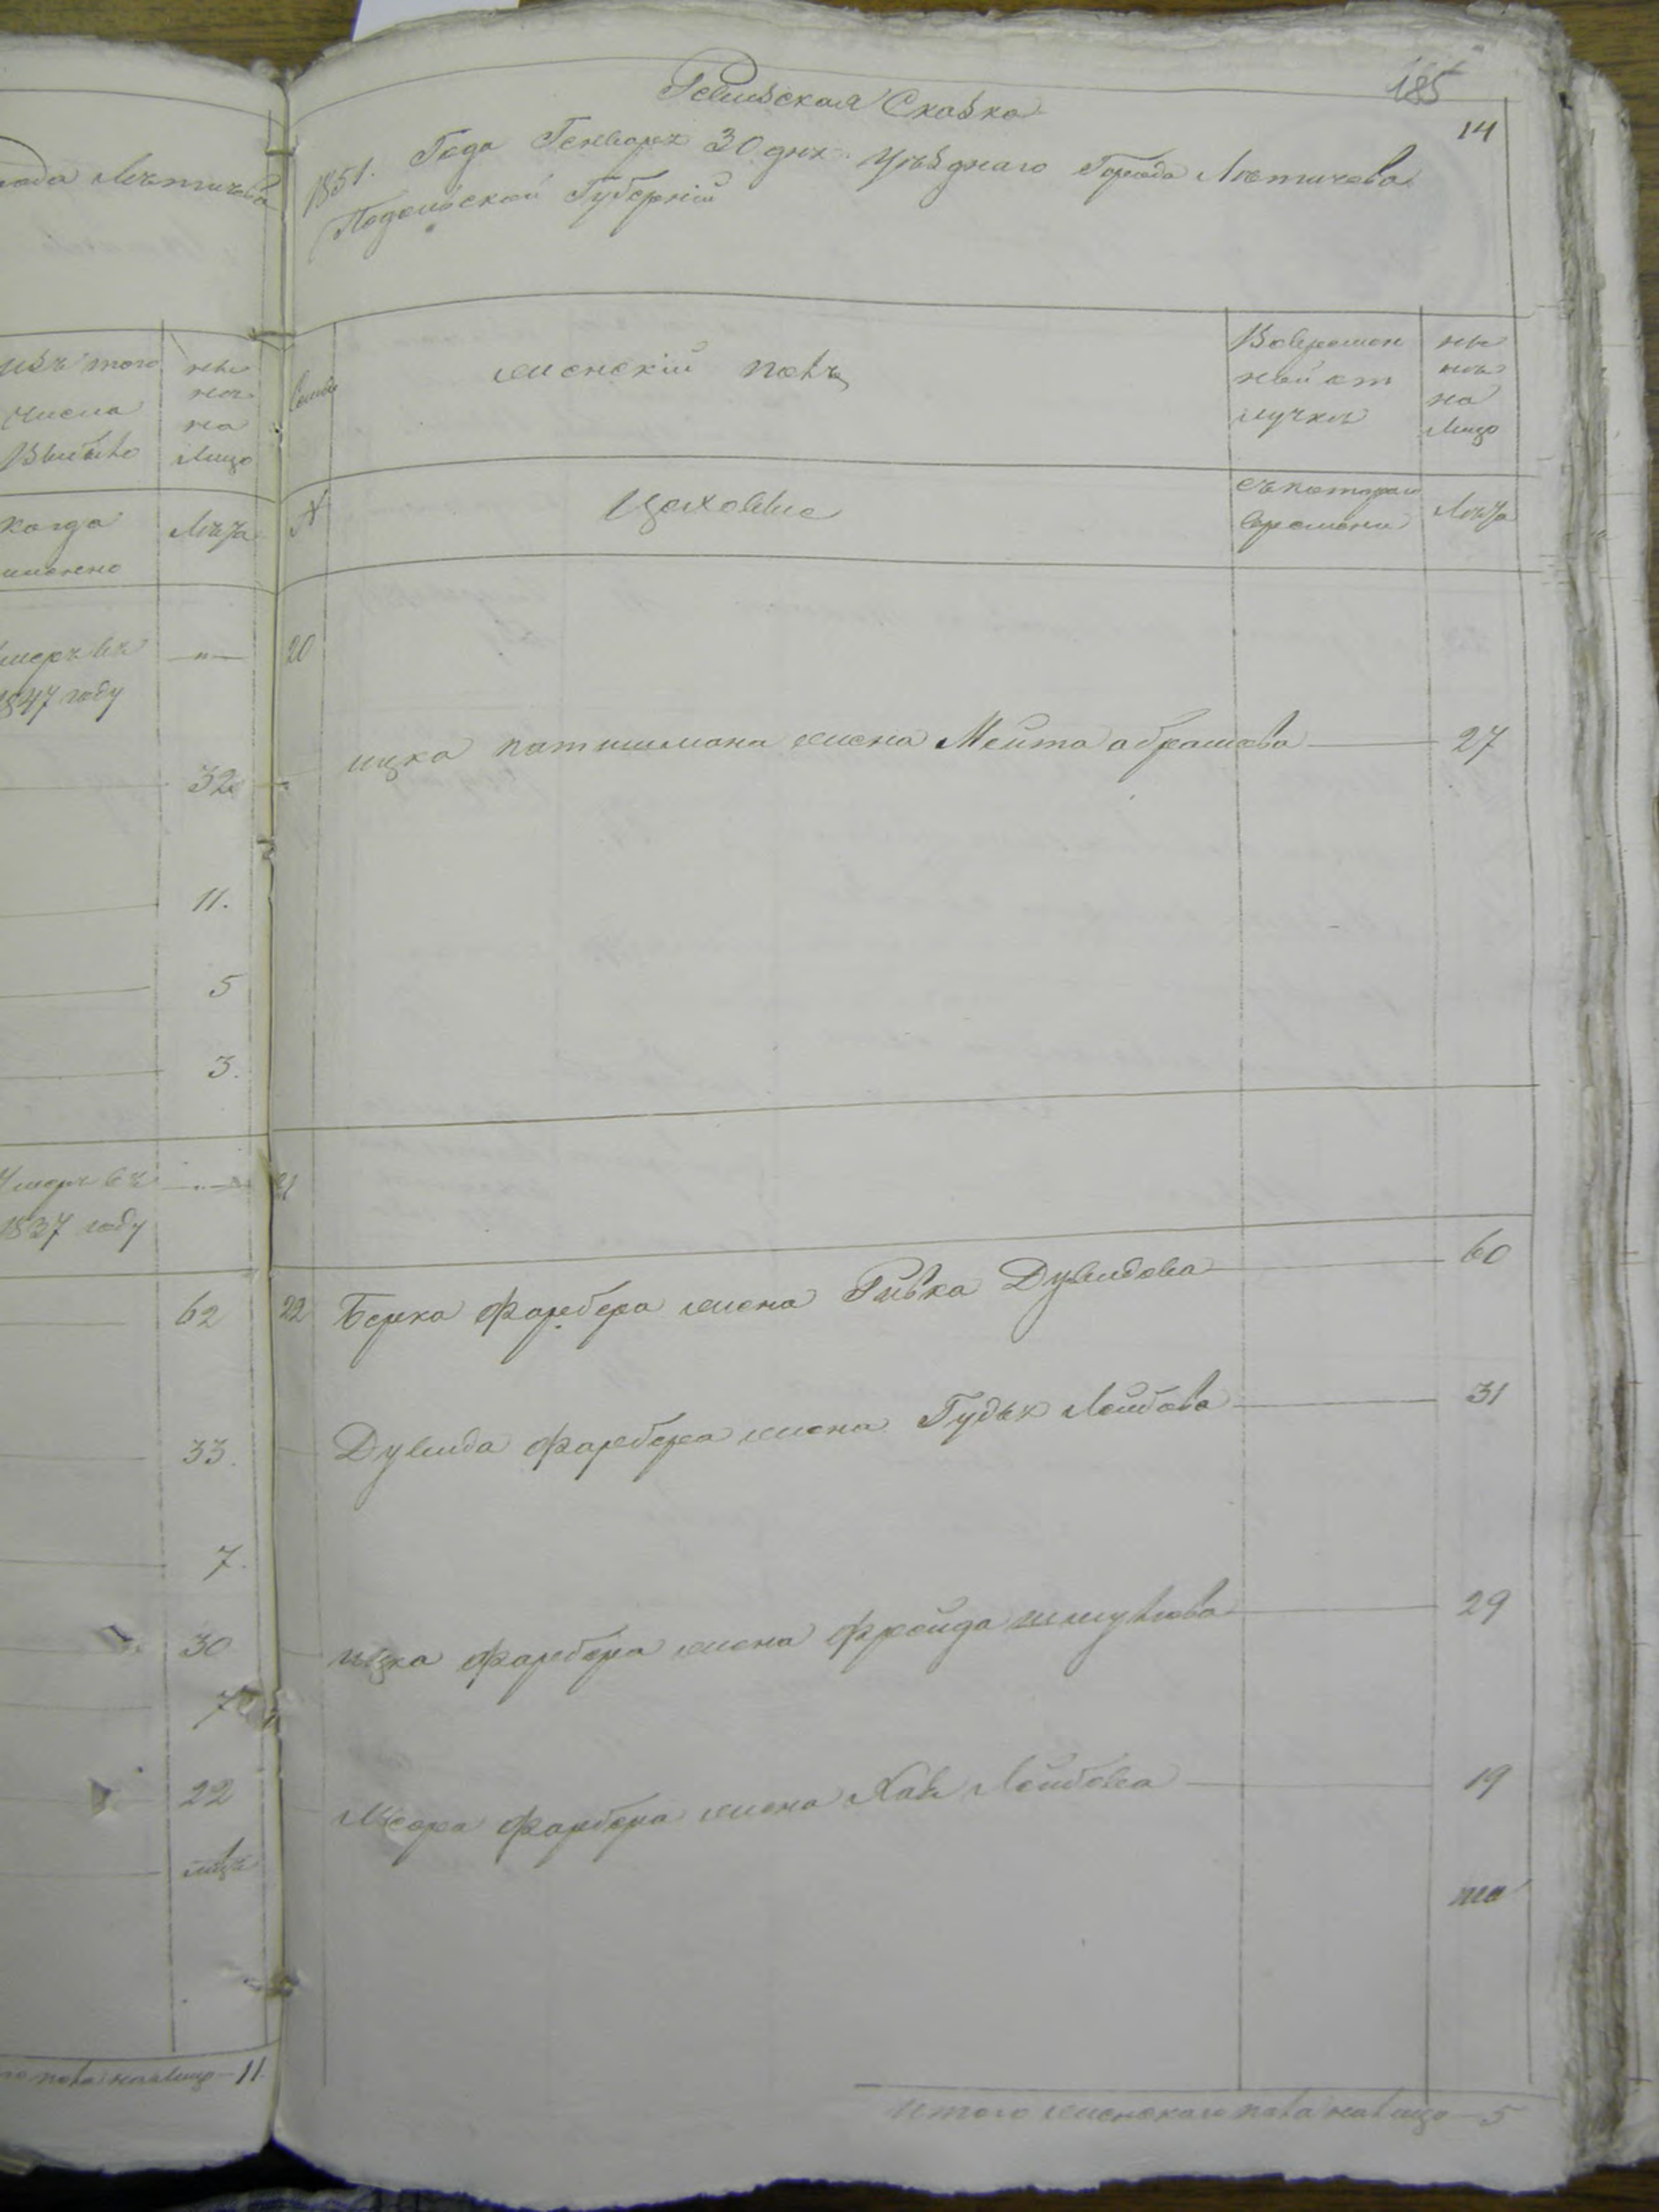 рода Летичева
изъ того
числа
Выбыло
ны
нѣ
на
Лицо
когда
именно
Лѣта
умеръ въ
1847 году
—"—
32
11.
5
3.
Умеръ въ
1837 году
62
33.
7.
30
7
22
пола на лицо — 11
Ревизская Сказка
185
14
1851. Года Генваря 30 дня Уѣзднаго Города Летичева
Подольской Губерніи
Семьи
женскій полъ
Вовремен
ной от
лучкѣ
ны
нѣ
на
Лицо
№
Цеховые
съ котораго
времени
Лѣта
20
ицка патишмана жена Мейта абрамова — 27
21
22 Берка Фарбера жена Ривка Дувидова — 60
Дувида Фарбера жена Гудья Лейбова — 31
ицка Фарбера жена Фрейда шмулова — 29
Фарбера жена Хая Лейбова — 19
итого женскаго пола на лицо — 5